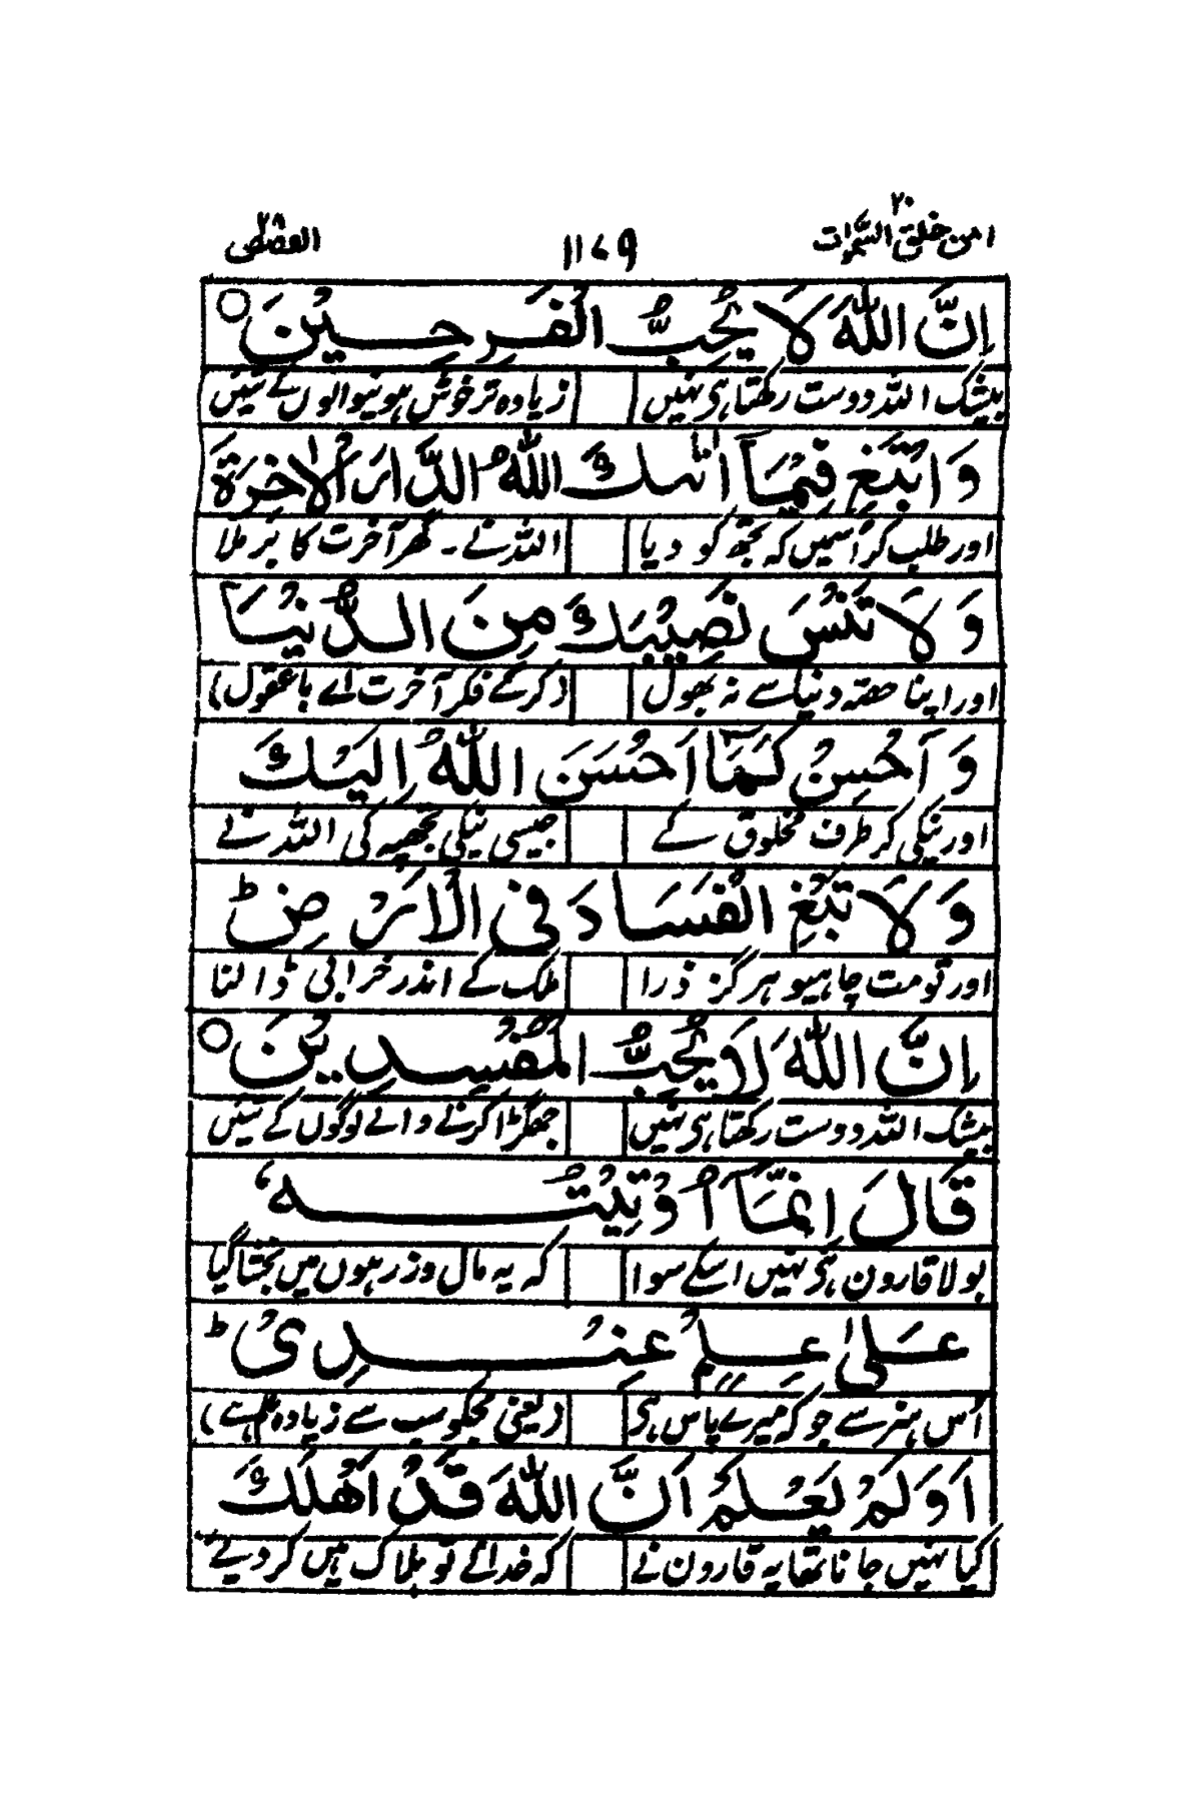 امن خلق السمٰوات ۲۰ ۱۱۷۹ القصص ۲۸
اِنَّ اللّٰهَ لَا يُحِبُّ الْفَرِحِيْنَ ○
بیشک اللہ دوست رکھتا ہی نہیں زیادہ تر خوش ہونیوالوں کے تئیں
وَ ابْتَغِ فِيْمَآ اٰتٰىكَ اللّٰهُ الدَّارَ الْاٰخِرَةَ
اور طلب کر اُسمیں کہ تجھ کو دیا اللہ نے ۔ گھر آخرت کا بر ملا
وَ لَا تَنْسَ نَصِيْبَكَ مِنَ الدُّنْيَا
اور اپنا حصّہ دنیا سے نہ بھول (ذکر کے فکر آخرت اے با عقول)
وَ اَحْسِنْ كَمَآ اَحْسَنَ اللّٰهُ اِلَيْكَ
اور نیکی کر طرف مخلوق کے جیسی نیکی تجھپہ کی اللہ نے
وَ لَا تَبْغِ الْفَسَادَ فِي الْاَرْضِ ؕ
اور تو مت چاہیو ہرگز ذرا ملک کے اندر خرابی ڈالنا
اِنَّ اللّٰهَ لَا يُحِبُّ الْمُفْسِدِيْنَ ○
بیشک اللہ دوست رکھتا ہی نہیں جھگڑا کرنے والے لوگوں کے تئیں
قَالَ اِنَّمَآ اُوْتِيْتُهٗ
بولا قارون ہی نہیں اسکے سوا کہ یہ مال و زر ہوں میں بخشا گیا
عَلٰى عِلْمٍ عِنْدِيْ ؕ
اُس ہنر سے جو کہ میرے پاس ہی (یعنی مجکو سب سے زیادہ علم ہے)
اَوَ لَمْ يَعْلَمْ اَنَّ اللّٰهَ قَدْ اَهْلَكَ
کیا نہیں جانا تھا یہ قارون نے کہ خدا نے تو ہلاک ہیں کر دیے